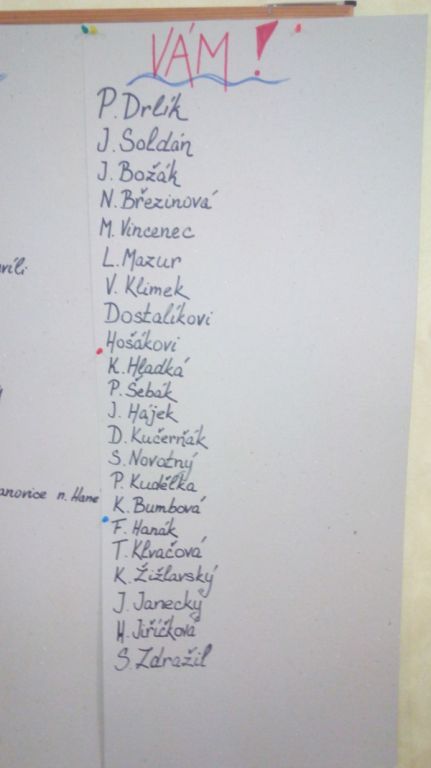 VÁM!
P. Drlík
J. Soldán
J. Božák
N. Březinová
M. Vincenec
L. Mazur
V. Klimek
Dostalíkovi
Hošákovi
K. Hladká
P. Šebák
J. Hájek
D. Kučerňák
S. Novotný
P. Kudělka
K. Bumbová
F. Hanák
T. Klvačová
K. Žižlavský
J. Janecký
H. Jiříčková
S. Zdražil
n. Hané